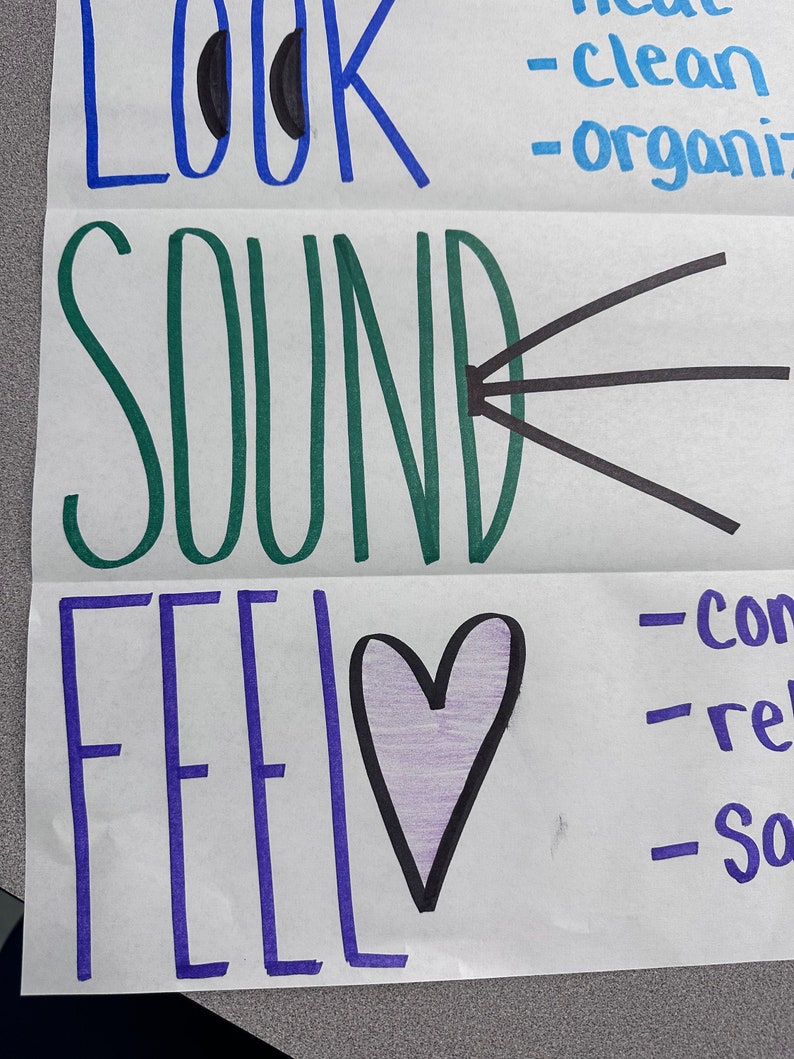 LOOK
- neat
- clean
- organiz
SOUND
FEEL
- con
- rel
- sa